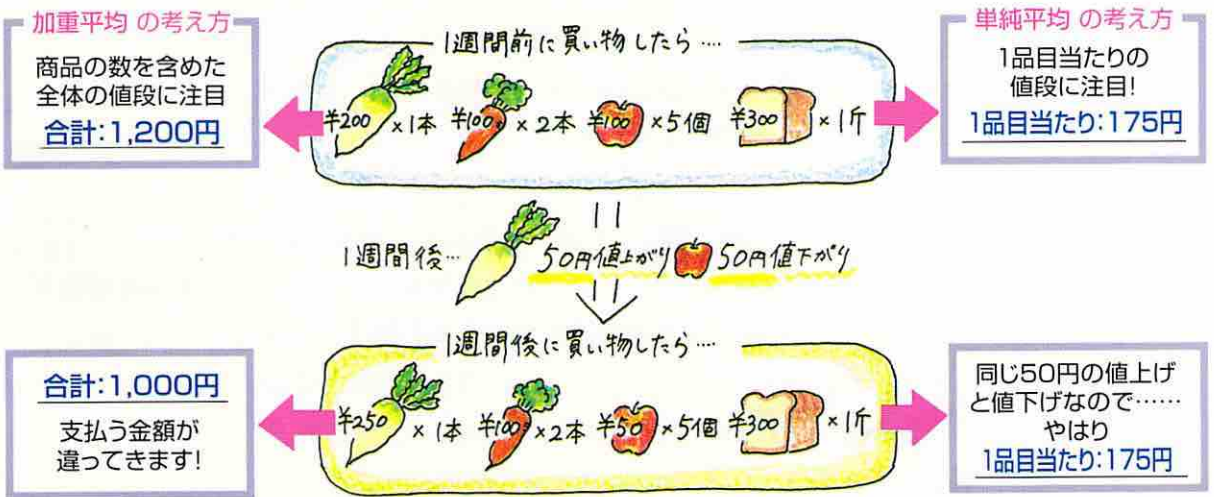 加重平均 の考え方
商品の数を含めた
全体の値段に注目
合計:1,200円
1週間前に買い物したら‥‥
¥200 ×1本 ¥100 ×2本 ¥100 ×5個 ¥300 ×1斤
単純平均 の考え方
1品目当たりの
値段に注目!
1品目当たり:175円
1週間後… 50円値上がり 50円値下がり
1週間後に買い物したら‥‥
¥250 ×1本 ¥100 ×2本 ¥50 ×5個 ¥300 ×1斤
合計:1,000円
支払う金額が
違ってきます!
同じ50円の値上げ
と値下げなので……
やはり
1品目当たり:175円